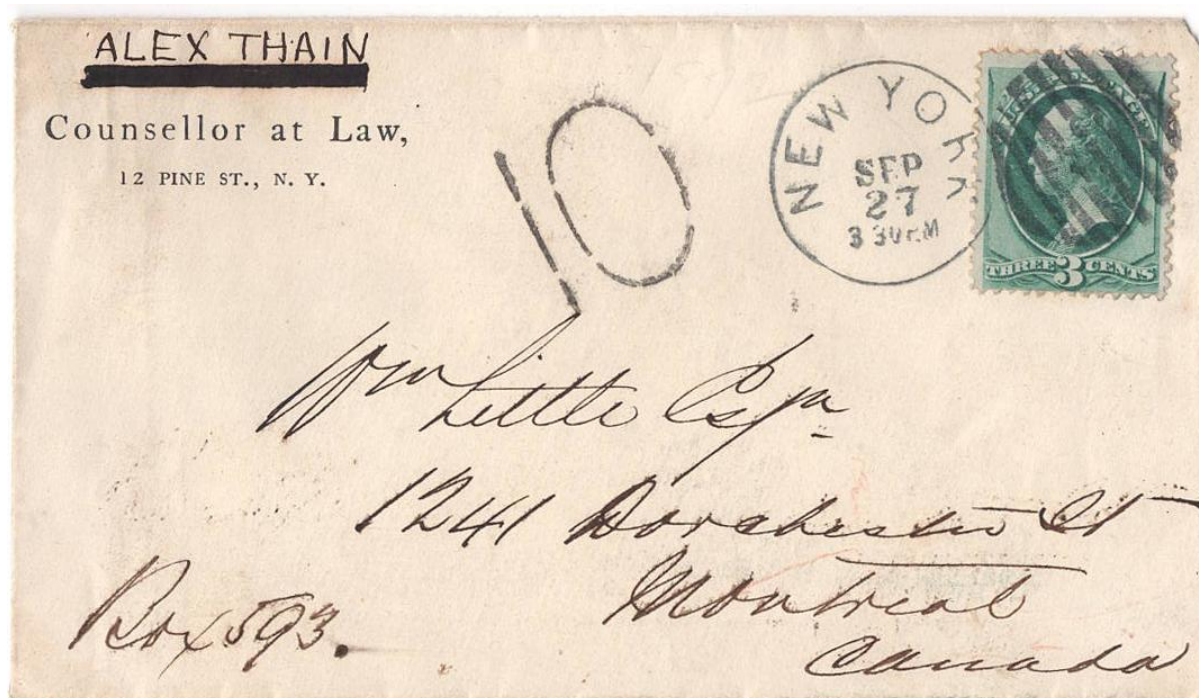 ALEX THAIN
Counsellor at Law,
12 PINE ST., N. Y.
10
NEW YORK
SEP
27
3 30 PM
THREE 3 CENTS
Wm Little Esqr
1241 Dorchester St
Montreal
Canada
Box 593.